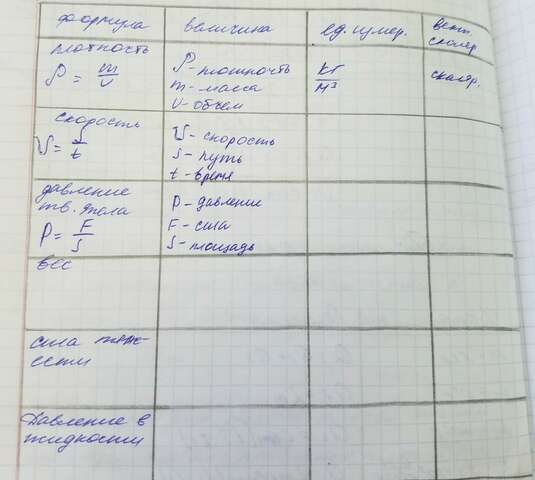 формула величина ед. измер. вект. скаляр
плотность
ρ = m/v
ρ - плотность
m - масса
v - объем
кг/м³
скаляр.
скорость
v = s/t
v - скорость
s - путь
t - время
давление
тв. тела
P = F/s
P - давление
F - сила
S - площадь
вес
сила тяжести
Давление в
жидкости